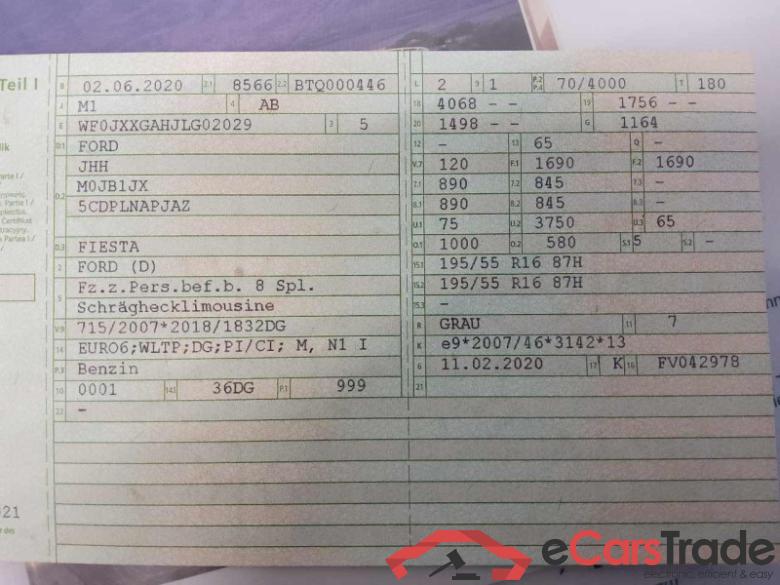 Teil I
B 02.06.2020 2.1 8566 2.2 BTQ000446
J M1 4 AB
E WF0JXXGAHJLG02029 3 5
D.1 FORD
JHH
D.2 M0JB1JX
5CDPLNAPJAZ
D.3 FIESTA
2 FORD (D)
5 Fz.z.Pers.bef.b. 8 Spl.
Schräghecklimousine
V.9 715/2007*2018/1832DG
14 EURO6;WLTP;DG;PI/CI; M, N1 I
P.3 Benzin
10 0001 14.1 36DG P.1 999
22 -
L 2 9 1 P.2 P.4 70/4000 T 180
18 4068 - - 19 1756 - -
20 1498 - - G 1164
12 - 13 65 Q -
V.7 120 F.1 1690 F.2 1690
7.1 890 7.2 845 7.3 -
8.1 890 8.2 845 8.3 -
U.1 75 U.2 3750 U.3 65
O.1 1000 O.2 580 S.1 5 S.2 -
15.1 195/55 R16 87H
15.2 195/55 R16 87H
15.3 -
R GRAU 11 7
K e9*2007/46*3142*13
6 11.02.2020 17 K 16 FV042978
21
eCarsTrade
electronic, efficient & easy